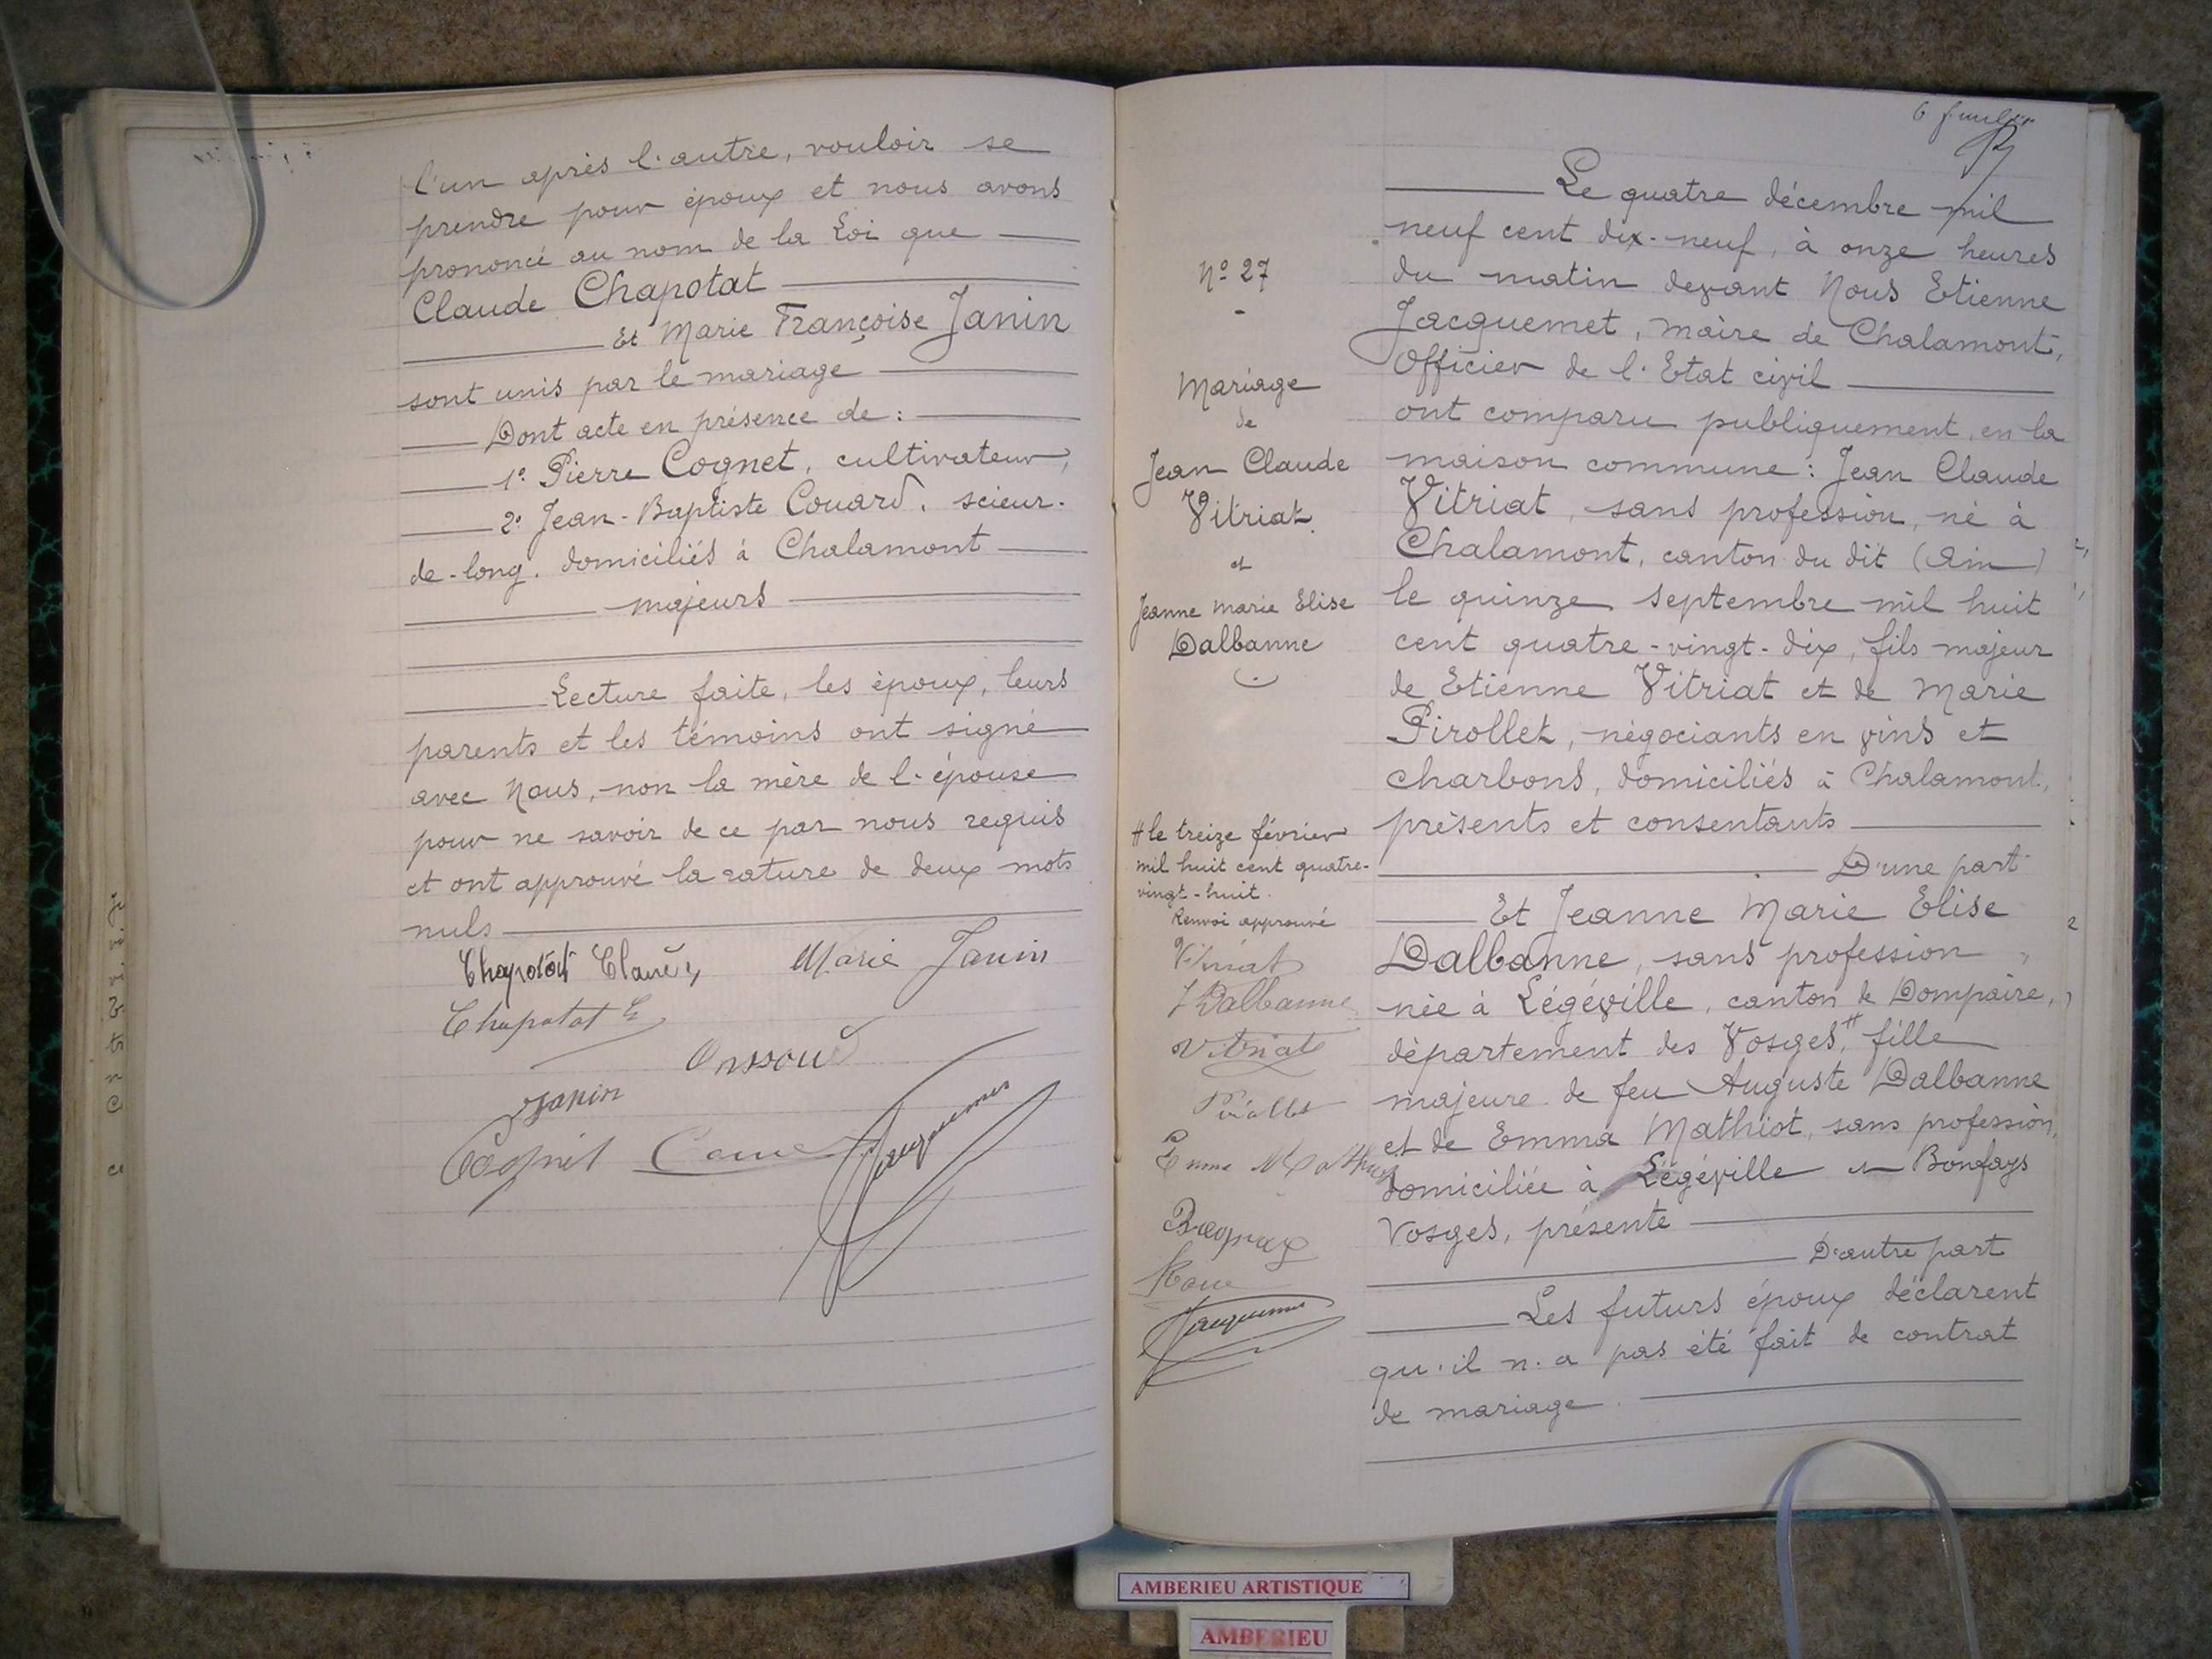 l'un après l'autre, vouloir se
prendre pour époux et nous avons
prononcé au nom de la Loi que
Claude Chapotat
Et Marie Françoise Janin
sont unis par le mariage
Dont acte en présence de :
1º Pierre Cognet, cultivateur,
2º Jean-Baptiste Couard, scieur-
de-long, domiciliés à Chalamont
majeurs
Lecture faite, les époux, leurs
parents et les témoins ont signé
avec Nous, non la mère de l'épouse
pour ne savoir de ce par nous requis
et ont approuvé la rature de deux mots
nuls
Chapotat Claude Marie Janin
Chapotat
Janin
Cognet
Jacquemet
Nº 27
Mariage
de
Jean Claude
Vitriat
et
Jeanne Marie Elise
Dalbanne
# le treize février
mil huit cent quatre-
vingt-huit.
Renvoi approuvé
Vitriat
J Dalbanne
Vitriat
Pirollet
Emma Mathiot
Jacquemet
6
Le quatre décembre mil
neuf cent dix-neuf, à onze heures
du matin devant Nous Etienne
Jacquemet, maire de Chalamont,
Officier de l'Etat civil
ont comparu publiquement, en la
maison commune : Jean Claude
Vitriat, sans profession, né à
Chalamont, canton du dit (Ain)
le quinze septembre mil huit
cent quatre-vingt-dix, fils majeur
de Etienne Vitriat et de Marie
Pirollet, négociants en vins et
charbons, domiciliés à Chalamont,
présents et consentants
D'une part
Et Jeanne Marie Elise
Dalbanne, sans profession,
née à Légéville, canton de Dompaire,
département des Vosges, # fille
majeure de feu Auguste Dalbanne
et de Emma Mathiot, sans profession,
domiciliée à Légéville et Bonfays
Vosges, présente
D'autre part
Les futurs époux déclarent
qu'il n'a pas été fait de contrat
de mariage.
AMBERIEU ARTISTIQUE
AMBERIEU